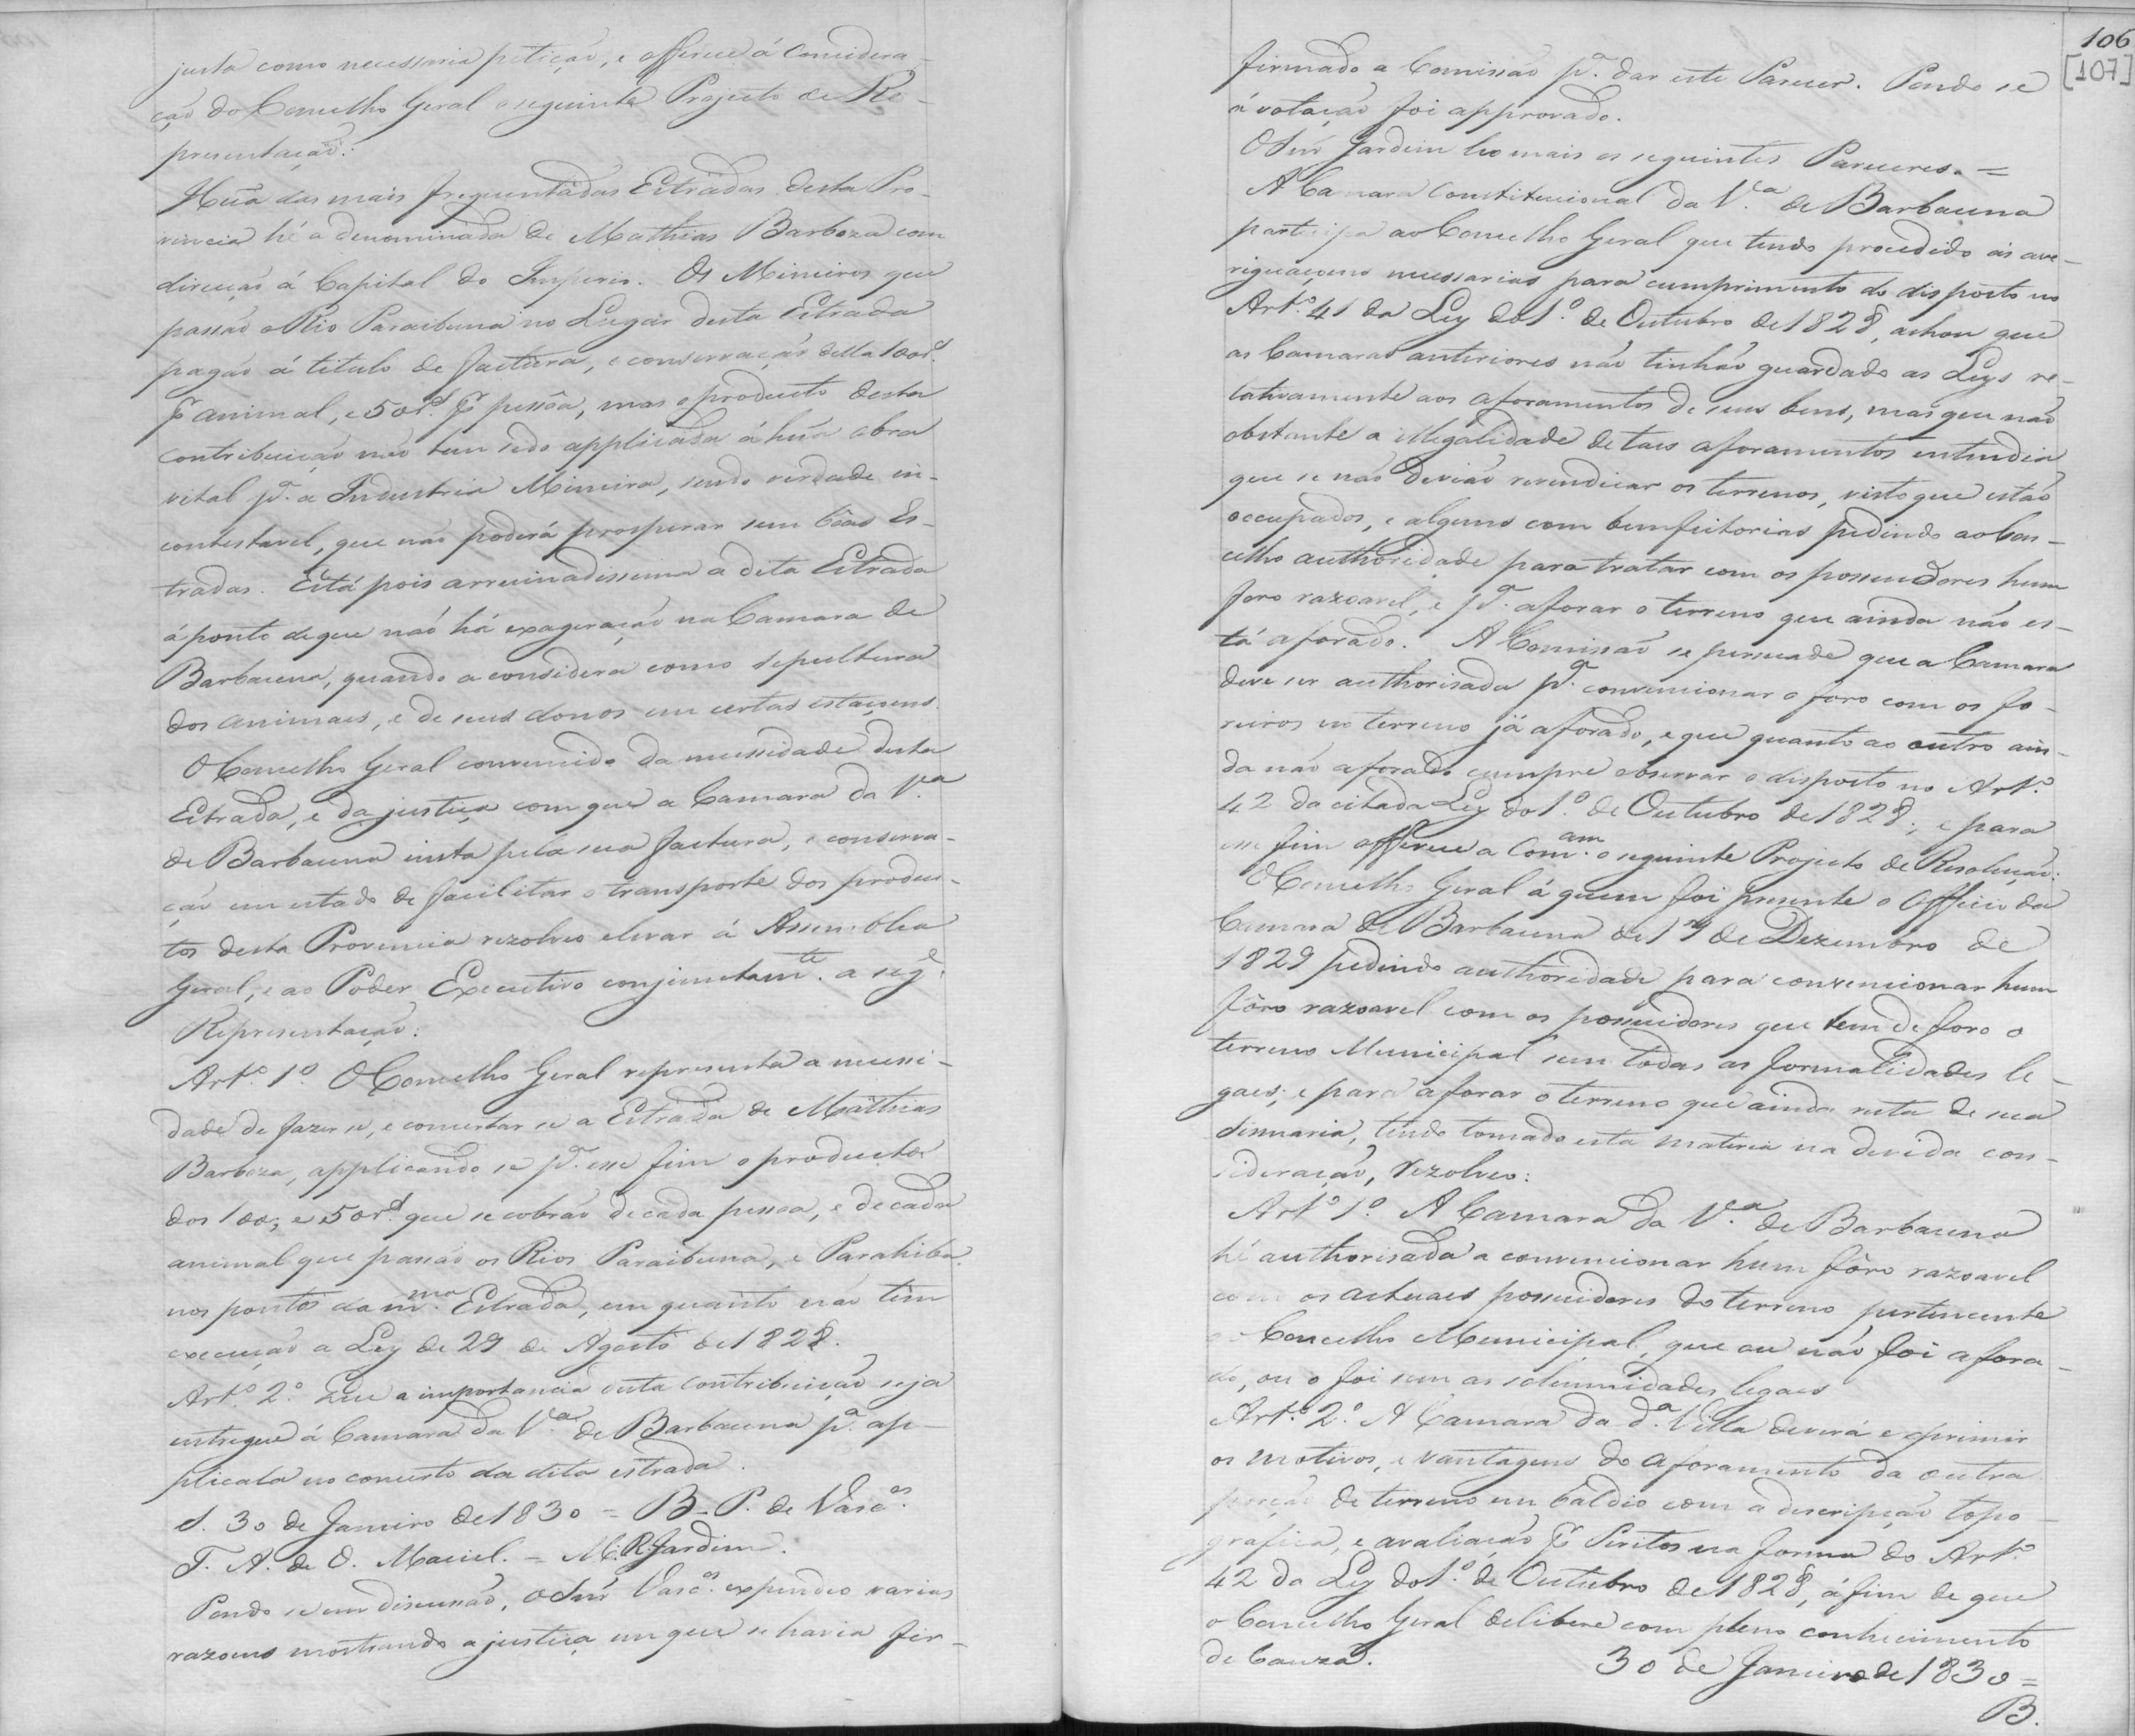 justa como necessaria petição, e offerece á considera-
ção do Concelho Geral o seguinte Projecto de Re-
presentação:
Huã das mais frequentadas Estradas desta Pro-
vincia hé a denominada de Mathias Barboza com
direcção á Capital do Imperio. Os Mineiros que
passão o Rio Paraibuna no Lugar desta Estrada
pagão á titulo de factura, e conservação della 100r.s
p.r animal, e 50r.s p.r pessôa, mas o producto desta
contribuição não tem sido applicada á huã obra
vital p.a a Industria Mineira, sendo verdade in-
contestavel, que não poderá prosperar sem bôas Es-
tradas. Está pois arruinadissima a dita Estrada
á ponto de que naó há exageração na Camara de
Barbacena, quando a considera como sepultura
dos animaes, e de seus donos em certas estaçoens.
O Concelho Geral convencido da necessidade desta
Estrada, e da justiça com que a Camara da V.a
de Barbacena insta pela sua factura, e conserva-
ção em estado de facilitar o transporte dos produc-
tos desta Provincia rezolveo elevar á Assemblea
Geral, e ao Poder Executivo conjunctam.te a seg.e
Representação:
Art.o 1.o O Concelho Geral representa a necessi-
dade de fazer se, e concertar se a Estrada de Mathias
Barboza, applicando se p.a esse fim o producto
dos 100; e 50r.s que se cobrão de cada pessoa, e de cada
animal que passão os Rios Paraibuna, e Parahiba
nos pontos da m.ma Estrada, em quanto não têm
execução a Ley de 29 de Agosto de 1828.
Art.o 2.o Que a importancia desta contribuição seja
entregue á Camara da V.a de Barbacena p.a ap-
plicala no concerto da dita estrada.
S. 30 de Janeiro de 1830 = B. P. de Vasc.os
T. A. de O. Maciel. = M. R. Jardim.
Pondo se em discussão, o Snr Vasc.os expendeo varias
razoens mostrando a justiça em que se havia fir-
106
[107]
firmado a Comissão p.a dar este Parecer. Pondo se
á votação foi approvado.
O Snr Jardim leo mais os seguintes Pareceres. =
A Camara Constitucional da V.a de Barbacena
participa ao Concelho Geral que tendo procedido ás ave-
riguaçoens necessarias para cumprimento do disposto no
Art.o 41 da Ley do 1.o de Outubro de 1828, achou que
as Camaras anteriores não tinhão guardado as Leys re-
lativamente aos aforamentos de seus bens, mas que não
obstante a illegalidade de taes aforamentos entendia
que se não devião revendicar os terrenos, visto que estão
occupados, e alguns com bemfeitorias pedindo ao Con-
celho authoridade para tratar com os possuidores hum
foro razoavel, e p.a aforar o terreno que ainda não es-
tá aforado. A Comissão se persuade que a Camara
deve ser authorisada p.a convencionar o foro com os fo-
reiros no terreno já aforado, e que quanto ao outro ain-
da não aforado cumpre observar o disposto no Art.o
42 da citada Ley do 1.o de Outubro de 1828; e para
esse fim offerece a Com.am o seguinte Projecto de Resolução:
O Concelho Geral á quem foi presente o Officio da
Camara de Barbacena de 17 de Dezembro de
1829 pedindo authoridade para convencionar hum
fôro razoavel com os possuidores que tem de foro o
terreno Municipal sem todas as formalidades le-
gaes; e para aforar o terreno que ainda resta de sua
sismaria, tendo tomado esta materia na devida con-
sideração, rezolveo:
Art.o 1.o A Camara da V.a de Barbacena
hé authorisada a convencionar hum fôro razoavel
com os actuaes possuidores do terreno pertencente
ao Concelho Municipal, que ou não foi afora-
do, ou o foi sem as solemnidades legaes
Art.o 2.o A Camara da d.a Villa deverá exprimir
os motivos, e vantagens do aforamento da outra
porção de terreno em baldio com a descripção topo-
grafica, e avaliação p.r Peritos na forma do Art.o
42 da Ley do 1.o de Outubro de 1828, á fim de que
o Concelho Geral delibere com pleno conhecimento
de Cauza. 30 de Janeiro de 1830 =
B.